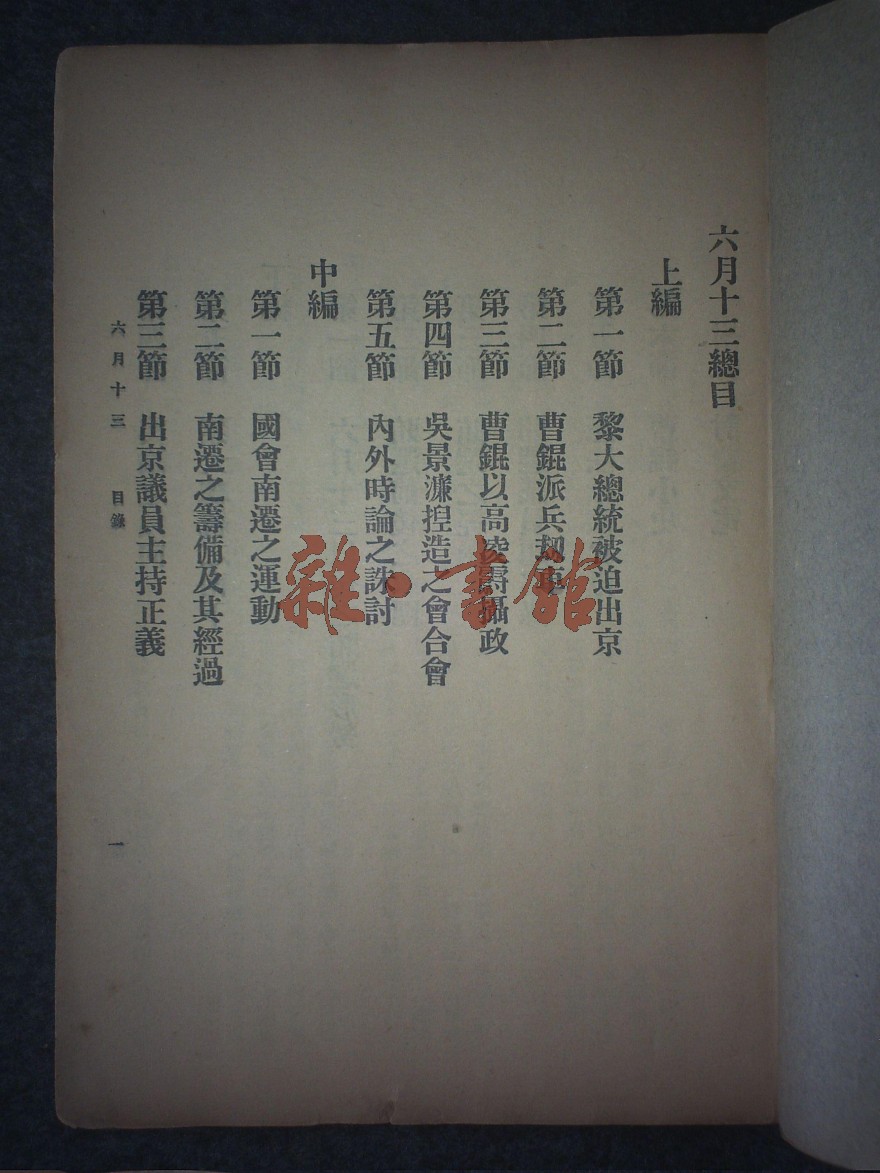 六月十三總目
上編
第一節 黎大總統被迫出京
第二節 曹錕派兵劫車
第三節 曹錕以高凌霨攝政
第四節 吳景濂揑造之會合會
第五節 內外時論之誅討
中編
第一節 國會南遷之運動
第二節 南遷之籌備及其經過
第三節 出京議員主持正義
六月十三 目錄
一
雜·書館